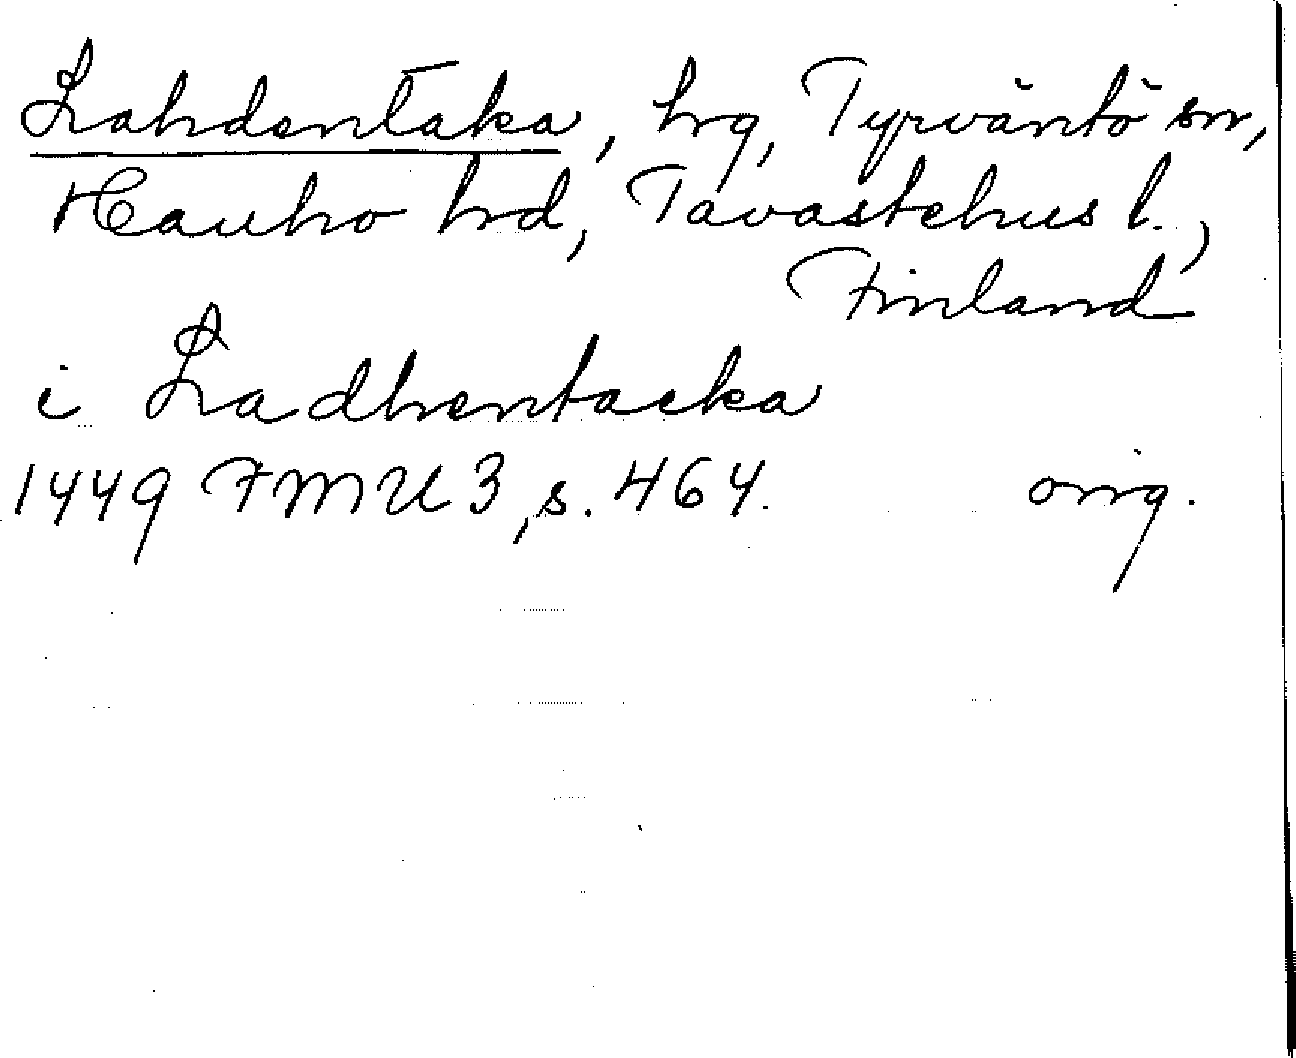 Lahdentaka, hrg, Tyrväntö sn,
Hauho hrd, Tavastehus l.,
Finland
i Ladhentacka
1449 FMU 3, s. 464.
orig.